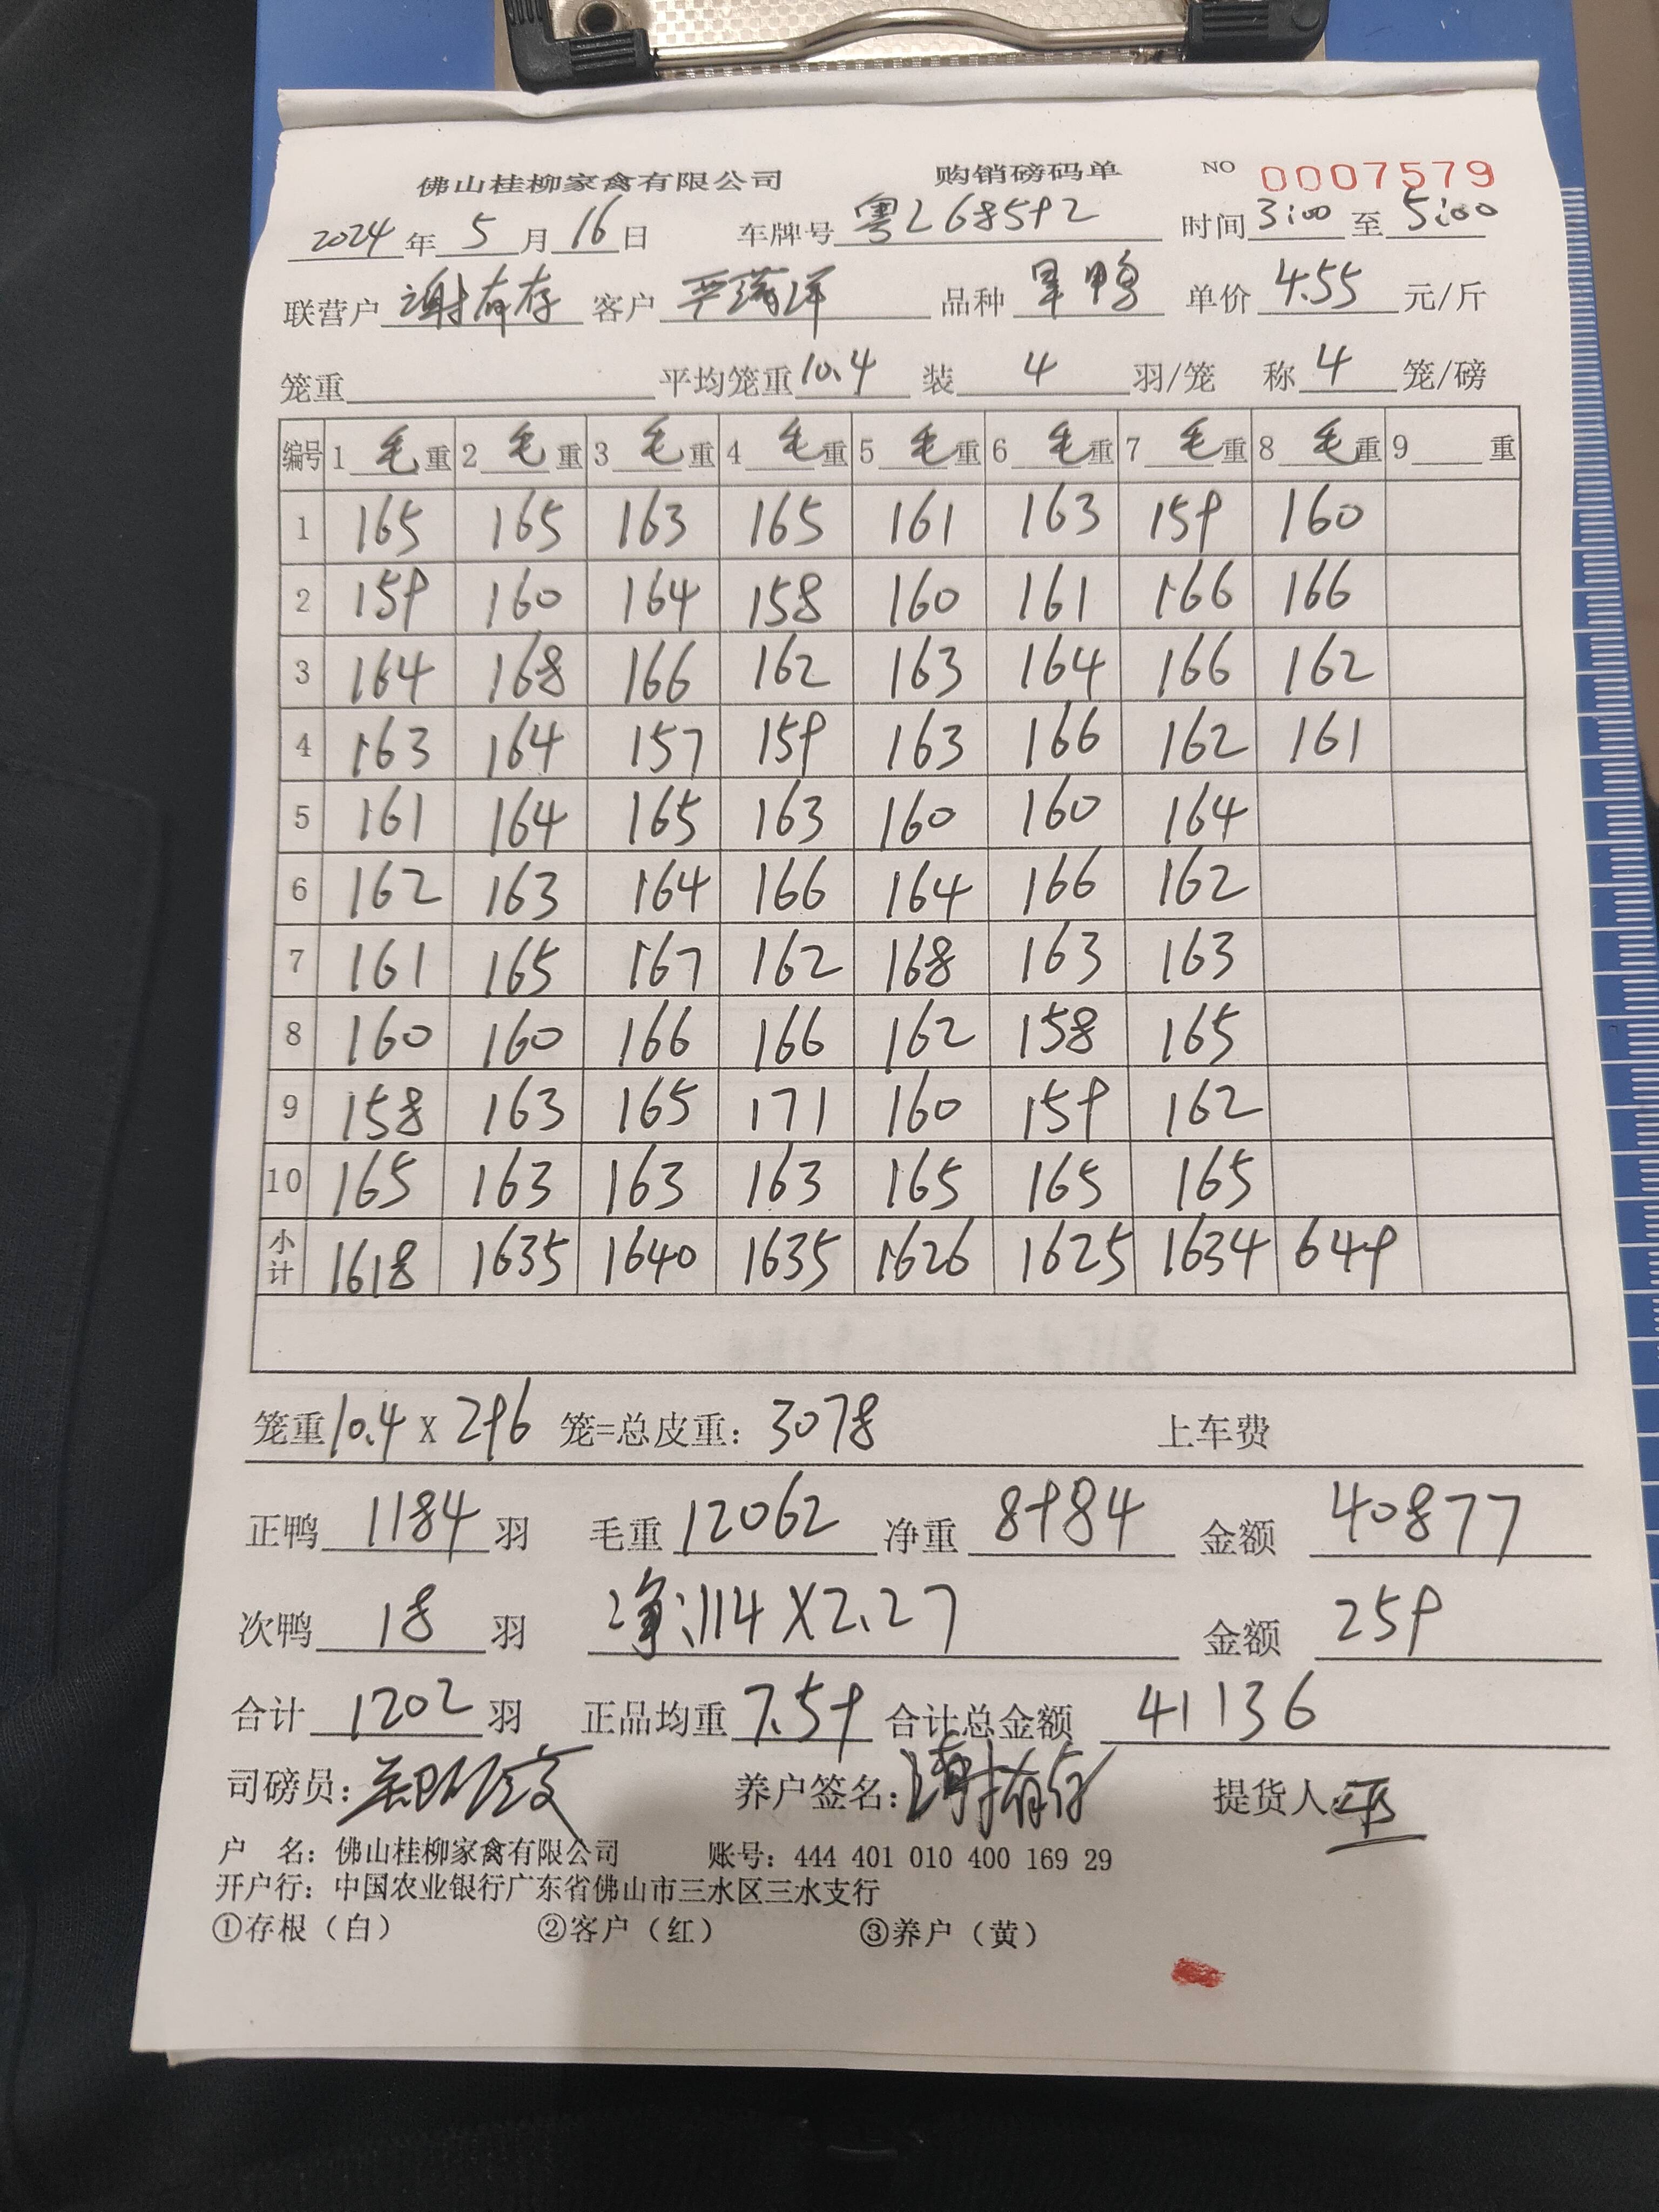 佛山桂柳家禽有限公司 购销磅码单 NO 0007579
2024年5月16日 车牌号 粤L68592 时间 3:00 至 5:00
联营户 谢有存 客户 品种 旱鸭 单价 4.55 元/斤
笼重 平均笼重 10.4 装 4 羽/笼 称 4 笼/磅
编号 1 毛重 2 毛重 3 毛重 4 毛重 5 毛重 6 毛重 7 毛重 8 毛重 9 重
1 165 165 163 165 161 163 159 160
2 159 160 164 158 160 161 166 166
3 164 168 166 162 163 164 166 162
4 163 164 157 159 163 166 162 161
5 161 164 165 163 160 160 164
6 162 163 164 166 164 166 162
7 161 165 167 162 168 163 163
8 160 160 166 166 162 158 165
9 158 163 165 171 160 159 162
10 165 163 163 163 165 165 165
小计 1618 1635 1640 1635 1626 1625 1634 649
笼重 10.4 X 296 笼=总皮重: 3078 上车费
正鸭 1184 羽 毛重 12062 净重 8984 金额 40877
次鸭 18 羽 净:114 X 2.27 金额 259
合计 1202 羽 正品均重 7.59 合计总金额 41136
司磅员: 养户签名: 谢有存 提货人:
户 名: 佛山桂柳家禽有限公司 账号: 444 401 010 400 169 29
开户行: 中国农业银行广东省佛山市三水区三水支行
①存根（白） ②客户（红） ③养户（黄）